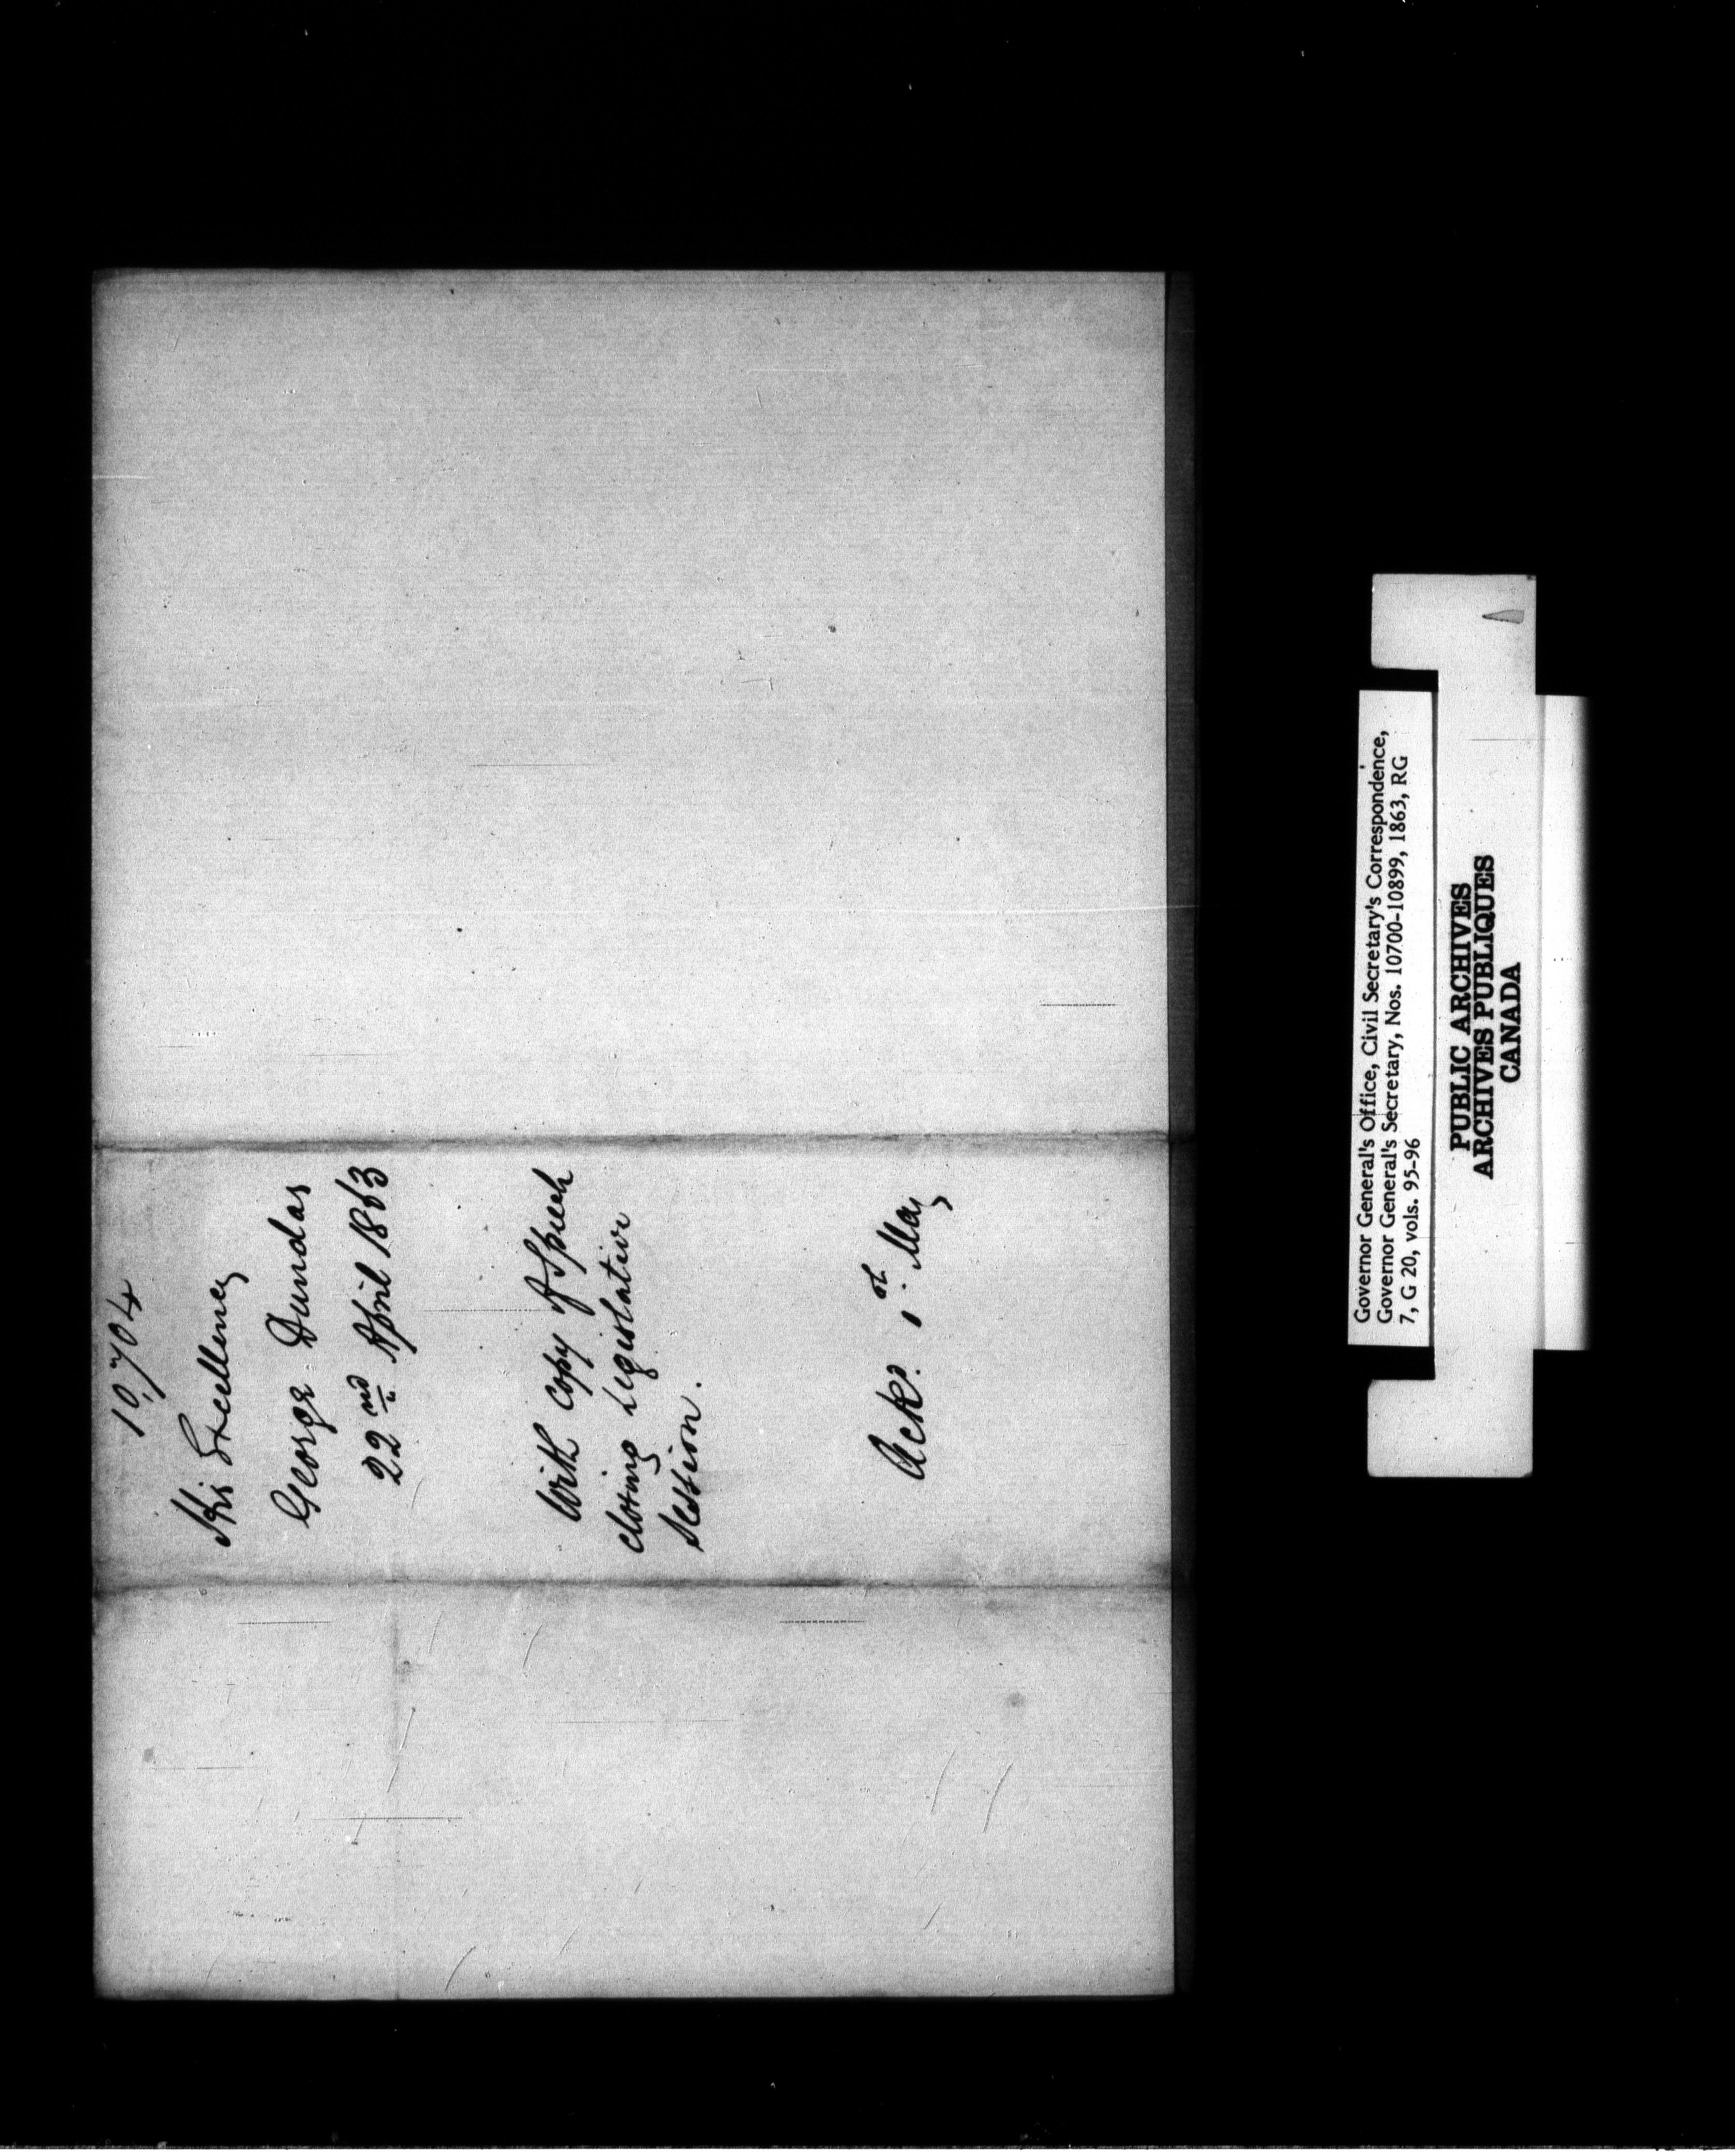 10,704
His Excellency
George Dundas
22nd April 1863
With copy of Speech
closing Legislative
Session.
Ackd. 1st. May
Governor General's Office, Civil Secretary's Correspondence,
Governor General's Secretary, Nos. 10700-10899, 1863, RG
7, G 20, vols. 95-96
PUBLIC ARCHIVES
ARCHIVES PUBLIQUES
CANADA